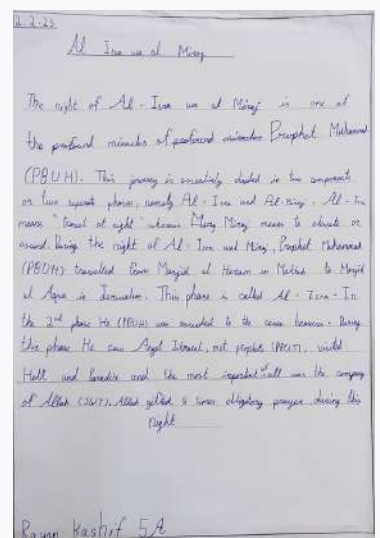 2.2.23
Al Isra wa al Miraj
The night of Al - Isra wa al Miraj is one of
the profound miracles of profound miracles Prophet Muhammad
(PBUH). This journey is essentially divided in two components
or two separate phases, namely Al - Isra and Al-Miraj. Al - Isra
means "travel at night" whereas Miraj means to elevate or
ascend. During the night of Al - Isra wal Miraj, Prophet Muhammad
(PBUH) travelled from Masjid al Haram in Makkah to Masjid
al Aqsa in Jerusalem. This phase is called Al - Isra - In
the 2nd phase He (PBUH) was ascended to the seven heavens. During
this phase He saw Angel Jibraeel, met prophets (PBUT), visited
Hell and Paradise and the most important of all was the company
of Allah (SWT). Allah gifted 5 times obligatory prayer during this
night
Rayan Kashif 5A